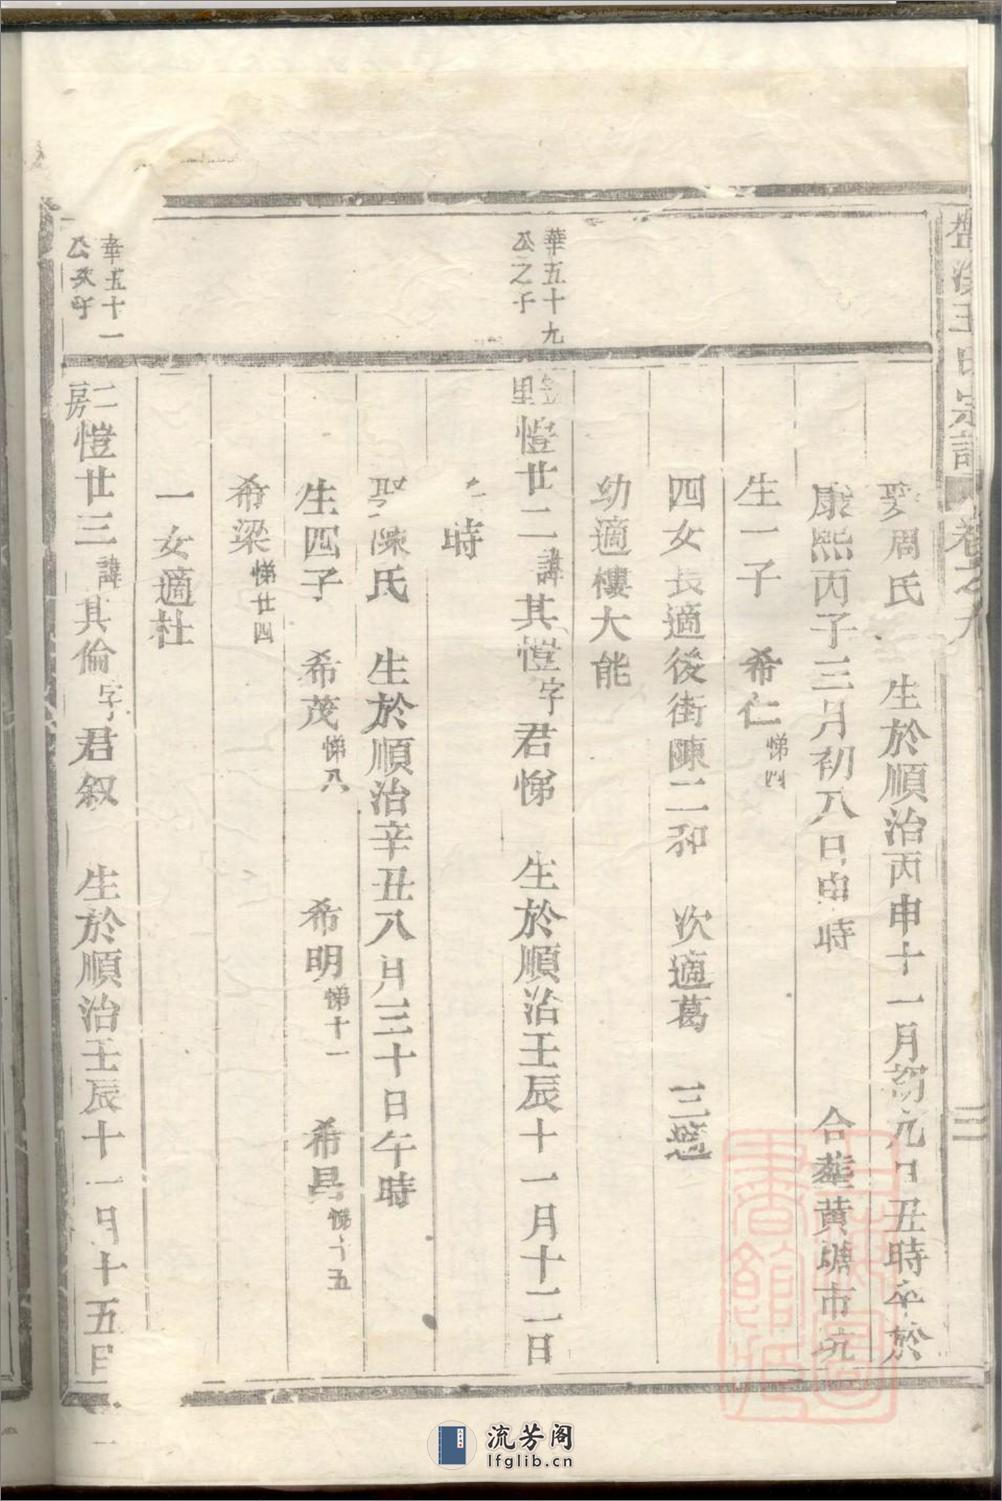 溪王氏宗譜 卷之九 二
娶周氏 生於順治丙申十一月初九日丑時卒於
康熙丙子三月初八日申時 合塟黄塘市坑
生一子 希仁悌四
四女長適後街陳二和 次適葛 三適
幼適樓大能
華五十九
公之子
里愷廿二諱其愷字君悌 生於順治壬辰十一月十二日
時
娶陳氏 生於順治辛丑八月三十日午時
生四子 希茂悌八 希明悌十一 希昌悌十五
希梁悌廿四
一女適杜
華五十一
公次子
二房愷廿三諱其倫字君叙 生於順治壬辰十一月十五日
流芳阁
lfglib.cn